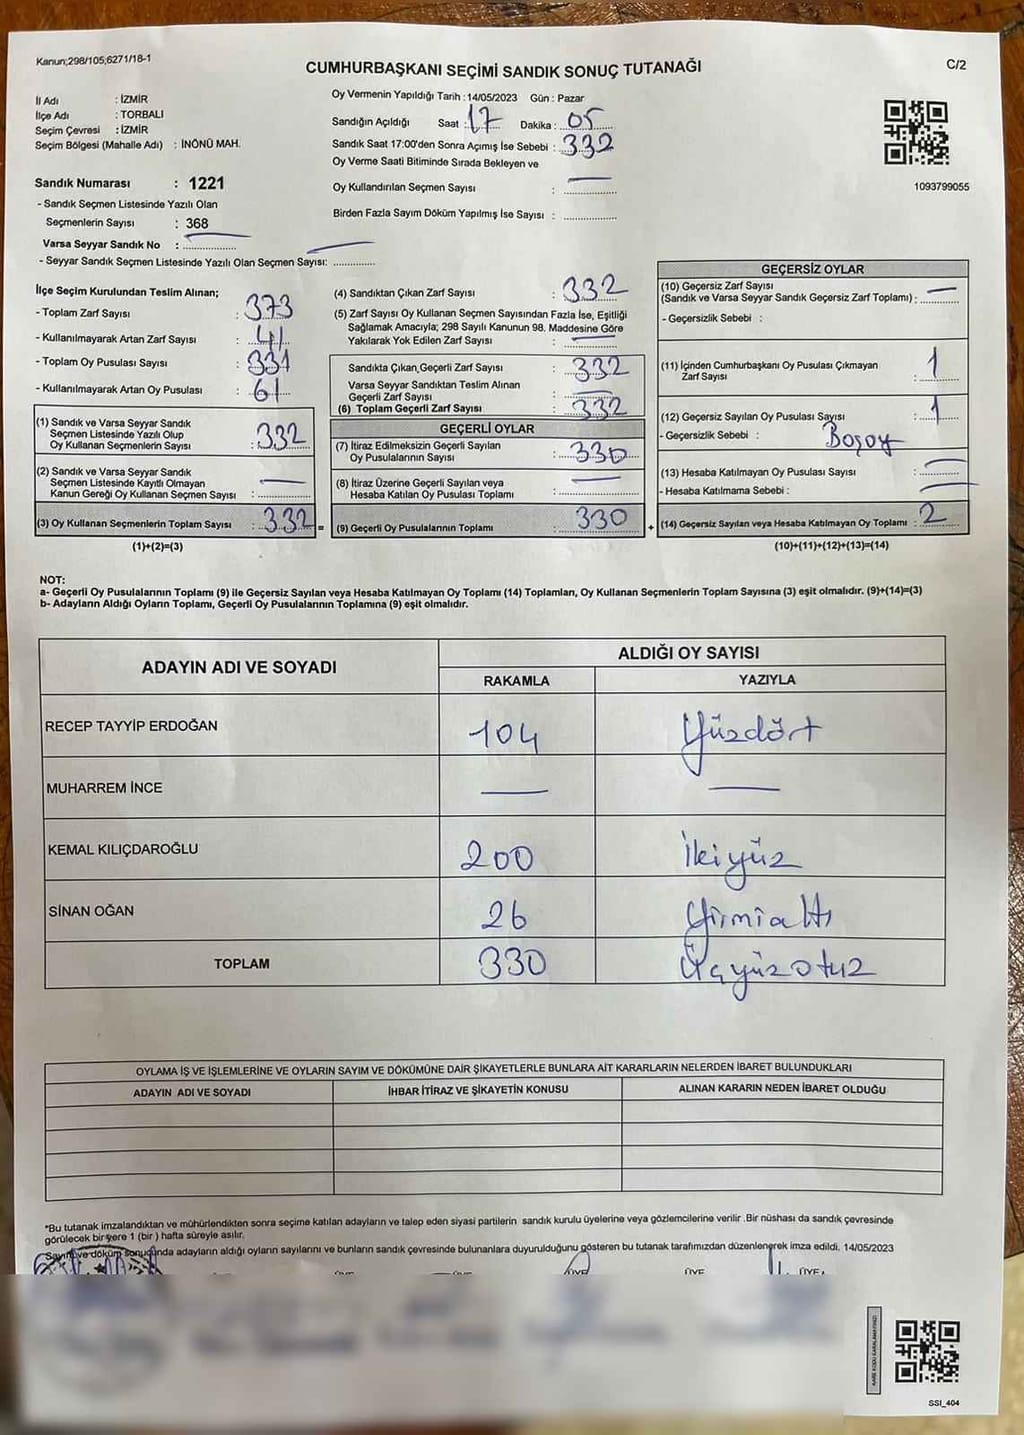 Kanun;298/105;6271/18-1
CUMHURBAŞKANI SEÇİMİ SANDIK SONUÇ TUTANAĞI
C/2
İl Adı : İZMİR
İlçe Adı : TORBALI
Seçim Çevresi : İZMİR
Seçim Bölgesi (Mahalle Adı) : İNÖNÜ MAH.
Sandık Numarası : 1221
- Sandık Seçmen Listesinde Yazılı Olan
Seçmenlerin Sayısı : 368
Varsa Seyyar Sandık No :
- Seyyar Sandık Seçmen Listesinde Yazılı Olan Seçmen Sayısı:
Oy Vermenin Yapıldığı Tarih : 14/05/2023 Gün : Pazar
Sandığın Açıldığı Saat : 17 Dakika : 05
Sandık Saat 17:00'den Sonra Açımış İse Sebebi : 332
Oy Verme Saati Bitiminde Sırada Bekleyen ve
Oy Kullandırılan Seçmen Sayısı : —
Birden Fazla Sayım Döküm Yapılmış İse Sayısı :
1093799055
İlçe Seçim Kurulundan Teslim Alınan;
- Toplam Zarf Sayısı : 373
- Kullanılmayarak Artan Zarf Sayısı : 41
- Toplam Oy Pusulası Sayısı :
- Kullanılmayarak Artan Oy Pusulası : 61
(1) Sandık ve Varsa Seyyar Sandık
Seçmen Listesinde Yazılı Olup
Oy Kullanan Seçmenlerin Sayısı : 332
(2) Sandık ve Varsa Seyyar Sandık
Seçmen Listesinde Kayıtlı Olmayan
Kanun Gereği Oy Kullanan Seçmen Sayısı : —
(3) Oy Kullanan Seçmenlerin Toplam Sayısı : 332 =
(1)+(2)=(3)
(4) Sandıktan Çıkan Zarf Sayısı : 332
(5) Zarf Sayısı Oy Kullanan Seçmen Sayısından Fazla İse, Eşitliği
Sağlamak Amacıyla; 298 Sayılı Kanunun 98. Maddesine Göre
Yakılarak Yok Edilen Zarf Sayısı : —
Sandıkta Çıkan Geçerli Zarf Sayısı : 332
Varsa Seyyar Sandıktan Teslim Alınan
Geçerli Zarf Sayısı : —
(6) Toplam Geçerli Zarf Sayısı : 332
GEÇERLİ OYLAR
(7) İtiraz Edilmeksizin Geçerli Sayılan
Oy Pusulalarının Sayısı : 330
(8) İtiraz Üzerine Geçerli Sayılan veya
Hesaba Katılan Oy Pusulası Toplamı : —
(9) Geçerli Oy Pusulalarının Toplamı : 330 +
GEÇERSİZ OYLAR
(10) Geçersiz Zarf Sayısı
(Sandık ve Varsa Seyyar Sandık Geçersiz Zarf Toplamı) : —
- Geçersizlik Sebebi :
(11) İçinden Cumhurbaşkanı Oy Pusulası Çıkmayan
Zarf Sayısı : 1
(12) Geçersiz Sayılan Oy Pusulası Sayısı : 1
- Geçersizlik Sebebi : Boşoy
(13) Hesaba Katılmayan Oy Pusulası Sayısı : —
- Hesaba Katılmama Sebebi : —
(14) Geçersiz Sayılan veya Hesaba Katılmayan Oy Toplamı : 2
(10)+(11)+(12)+(13)=(14)
NOT:
a- Geçerli Oy Pusulalarının Toplamı (9) ile Geçersiz Sayılan veya Hesaba Katılmayan Oy Toplamı (14) Toplamları, Oy Kullanan Seçmenlerin Toplam Sayısına (3) eşit olmalıdır. (9)+(14)=(3)
b- Adayların Aldığı Oyların Toplamı, Geçerli Oy Pusulalarının Toplamına (9) eşit olmalıdır.
ADAYIN ADI VE SOYADI ALDIĞI OY SAYISI
RAKAMLA YAZIYLA
RECEP TAYYİP ERDOĞAN 104 Yüzdört
MUHARREM İNCE — —
KEMAL KILIÇDAROĞLU 200 İkiyüz
SİNAN OĞAN 26 Yirmialtı
TOPLAM 330 Üçyüzotuz
OYLAMA İŞ VE İŞLEMLERİNE VE OYLARIN SAYIM VE DÖKÜMÜNE DAİR ŞİKAYETLERLE BUNLARA AİT KARARLARIN NELERDEN İBARET BULUNDUKLARI
ADAYIN ADI VE SOYADI İHBAR İTİRAZ VE ŞİKAYETİN KONUSU ALINAN KARARIN NEDEN İBARET OLDUĞU
*Bu tutanak imzalandıktan ve mühürlendikten sonra seçime katılan adayların ve talep eden siyasi partilerin sandık kurulu üyelerine veya gözlemcilerine verilir .Bir nüshası da sandık çevresinde
görülecek bir yere 1 (bir ) hafta süreyle asılır.
Sayım ve döküm sonucunda adayların aldığı oyların sayılarını ve bunların sandık çevresinde bulunanlara duyurulduğunu gösteren bu tutanak tarafımızdan düzenlenerek imza edildi. 14/05/2023
ÜYE ÜYE ÜYE ÜYE ÜYE
SSI_404